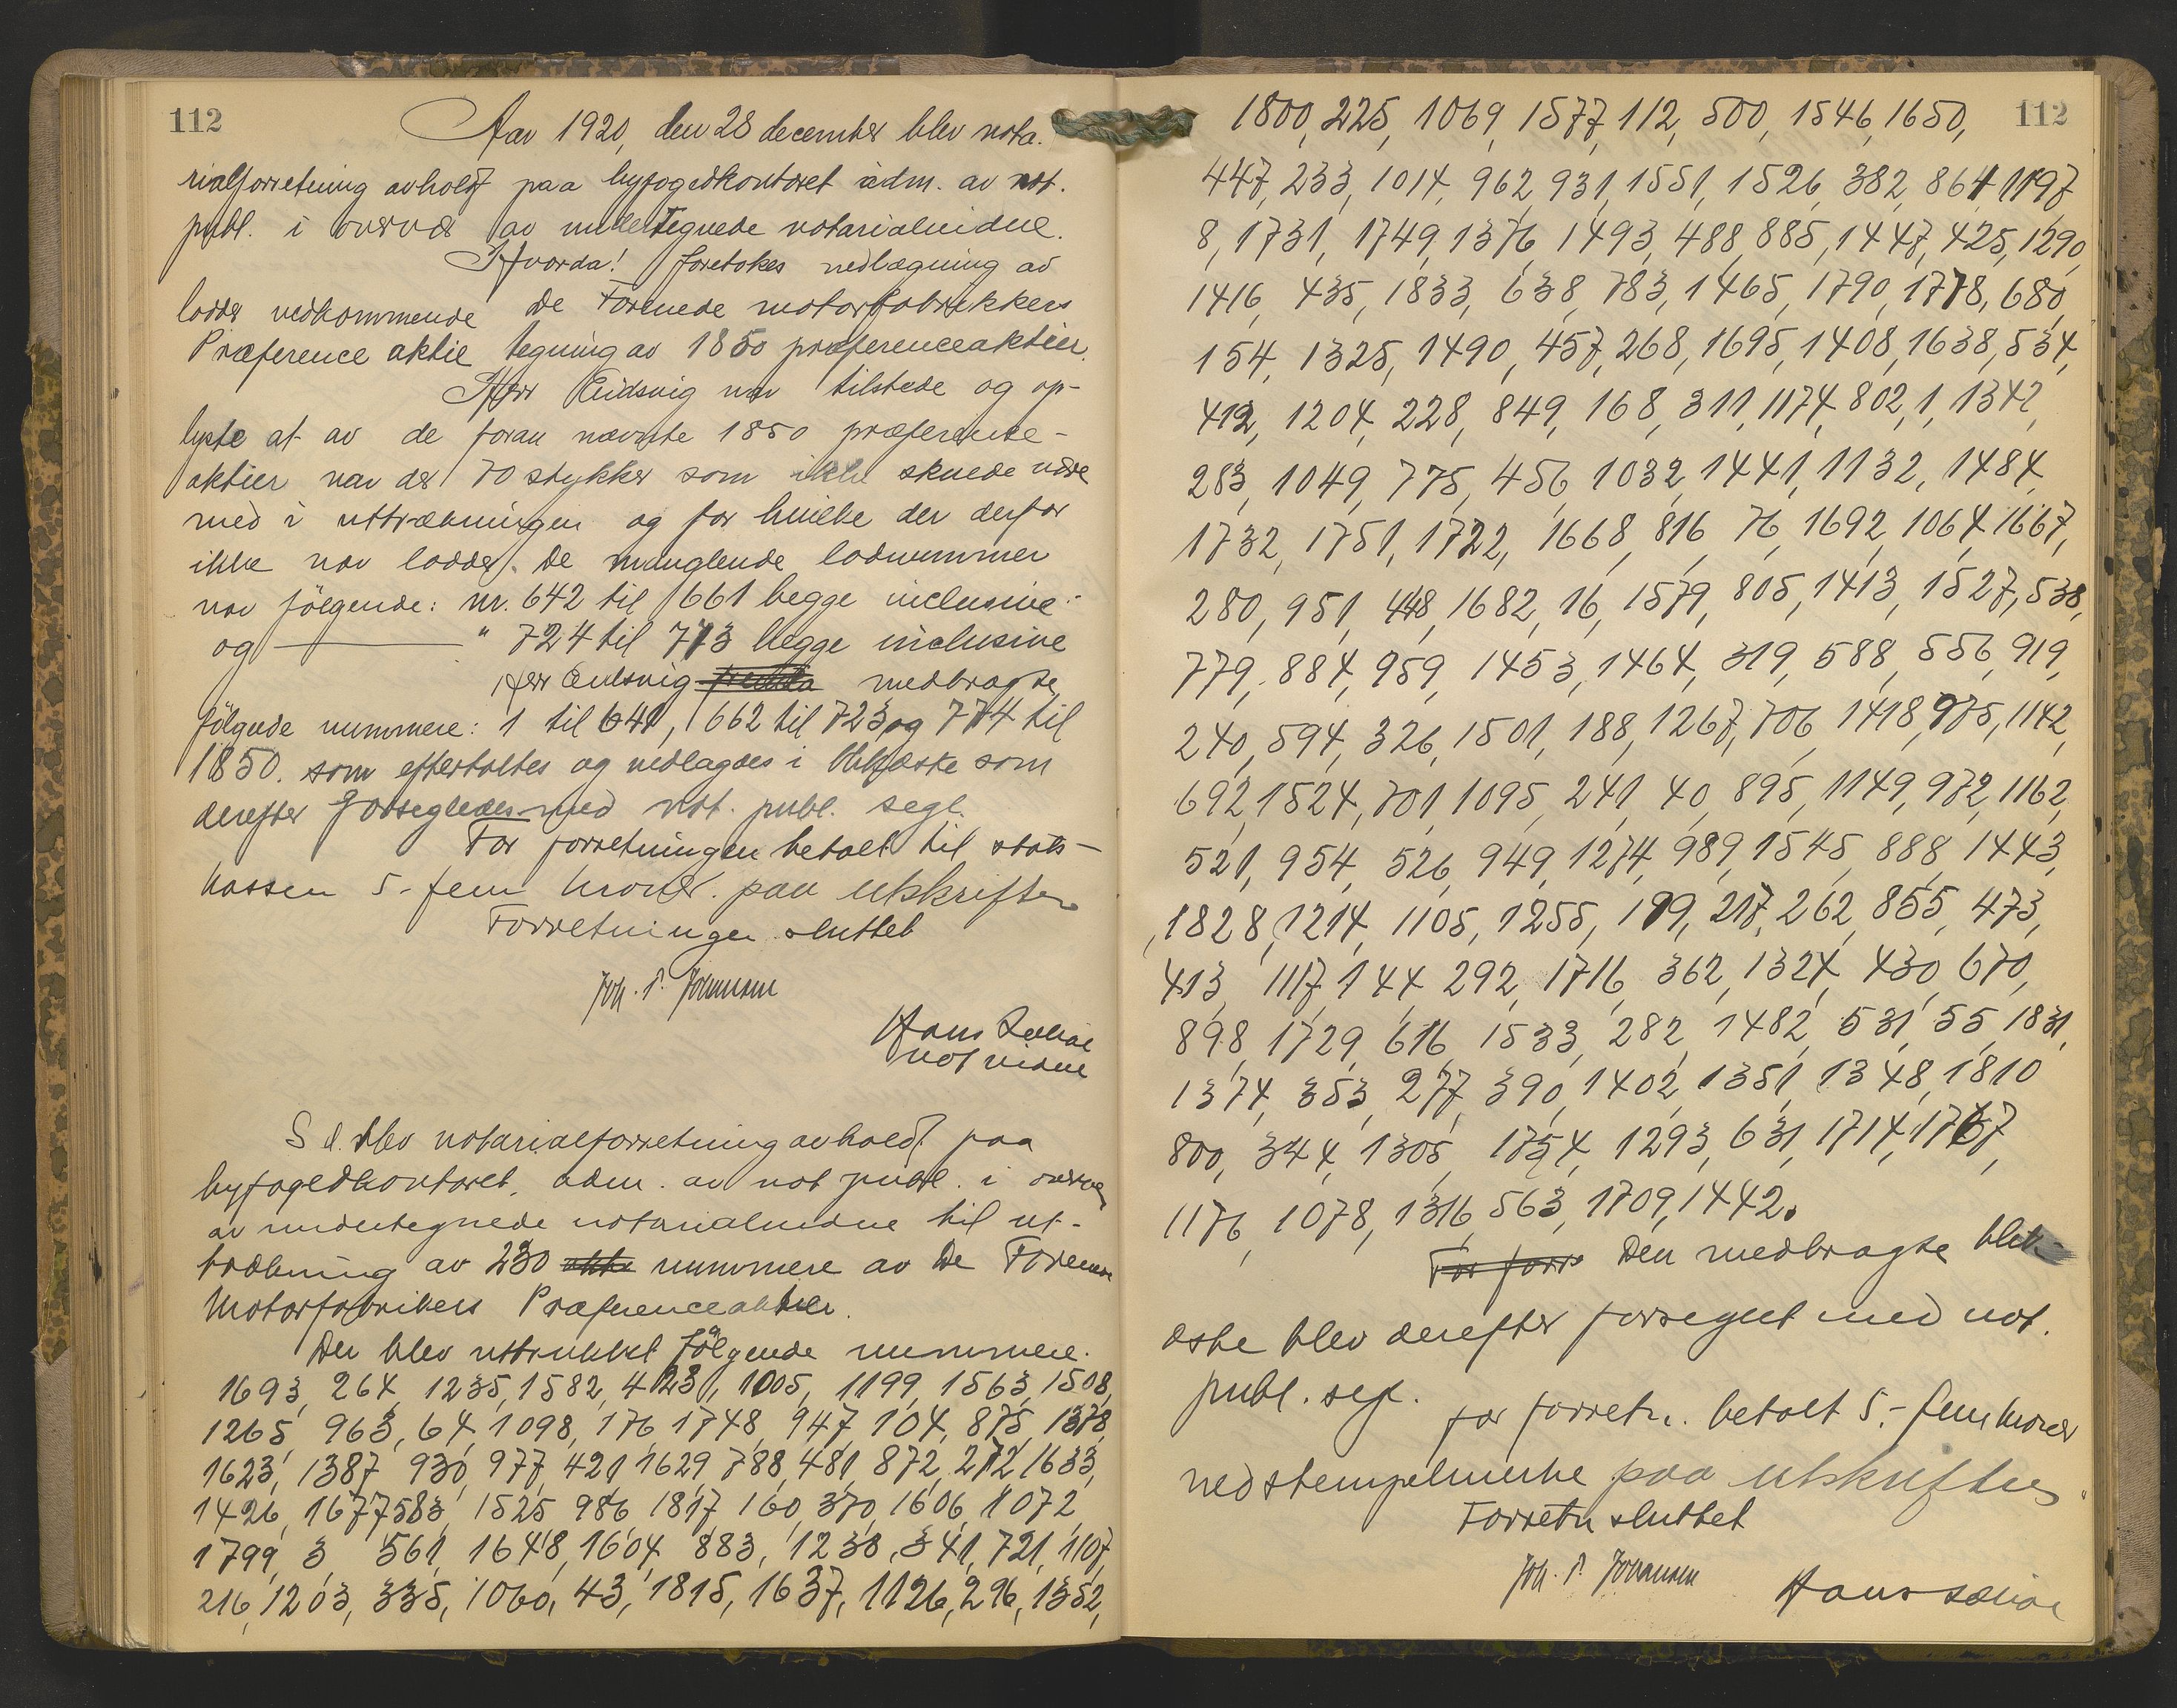 112
Aar 1920, den 28 december blev nota-
rialforretning avholdt paa byfogedkontoret adm. av not.
publ. i overvær av undertegnede notarialvidne.
Hvorda! foretokes nedlægning av
lodder vedkommende De Forenede motorfabrikkers
Præference aktie tegning av 1850 præferenceaktier.
Herr Eidsvig var tilstede og op-
lyste at av de foran nævnte 1850 præference-
aktier var der 70 stykker som ikke skulde være
med i uttrækningen og for hvilke der derfor
ikke var lodder. De manglende lodnummer
var følgende: nr. 642 til 661 begge inclusive
og " 724 til 773 begge inclusive
Herr Eidsvig medbragte
følgende nummere: 1 til 641, 662 til 723 og 774 til
1850. som eftertaltes og nedlagdes i blikæske som
derefter forsegledes med not. publ. segl.
For forretningen betalt til stats-
kassen 5.- fem kroner. paa utskriften
Forretningen sluttet
Joh. P. Johannsen
Hans
not vidne
S d. blev notarialforretning avholdt paa
byfogedkontoret. adm. av not publ. i overvær
av undertegnede notarialvidne til ut-
trækning av 230 nummere av De Forenede
Motorfabrikers Præferenceaktier.
Der blev uttrukket følgende nummere.
1693, 264, 1235, 1582, 423, 1005, 1199, 1563, 1508,
1265, 963, 64, 1098, 176, 1748, 947, 104, 875, 1378,
1623, 1387, 930, 977, 421, 1629, 788, 481, 872, 272, 1633,
1426, 1677, 583, 1525, 986, 1817, 160, 370, 1606, 1072,
1799, 3, 561, 1648, 1604, 883, 1238, 341, 721, 1107,
216, 1203, 335, 1060, 43, 1815, 1637, 1126, 296, 1352,
112
1800, 225, 1069, 1577, 112, 500, 1546, 1650,
447, 233, 1014, 962, 931, 1551, 1526, 382, 864, 1197
8, 1731, 1749, 1376, 1493, 488, 885, 1447, 425, 1290,
1416, 435, 1833, 638, 783, 1465, 1790, 1778, 680,
154, 1325, 1490, 457, 268, 1695, 1408, 1638, 534,
412, 1204, 228, 849, 168, 311, 1174, 802, 1, 1342,
283, 1049, 775, 456, 1032, 1441, 1132, 1484,
1732, 1751, 1722, 1668, 816, 76, 1692, 1064, 1667,
280, 951, 448, 1682, 16, 1579, 805, 1413, 1527, 538,
779, 884, 959, 1453, 1464, 319, 588, 556, 919,
240, 594, 326, 1501, 188, 1267, 706, 1418, 975, 1142,
692, 1524, 701, 1095, 241, 40, 895, 1149, 972, 1162,
521, 954, 526, 949, 1274, 989, 1545, 888, 1443,
1828, 1214, 1105, 1255, 199, 217, 262, 855, 473,
413, 1117, 144, 292, 1716, 362, 1324, 430, 670,
898, 1729, 616, 1533, 282, 1482, 531, 55, 1831,
1374, 353, 277, 390, 1402, 1351, 1348, 1810
800, 344, 1305, 1754, 1293, 631, 1714, 1767,
1176, 1078, 1316, 563, 1709, 1442.
For forr Den medbragte blik-
æske blev derefter forseglet med not.
publ. segl.
for forretn. betalt 5.- fem kroner
ved stempelmerke paa utskriften
Forretn sluttet
Joh. P. Johannsen
Hans